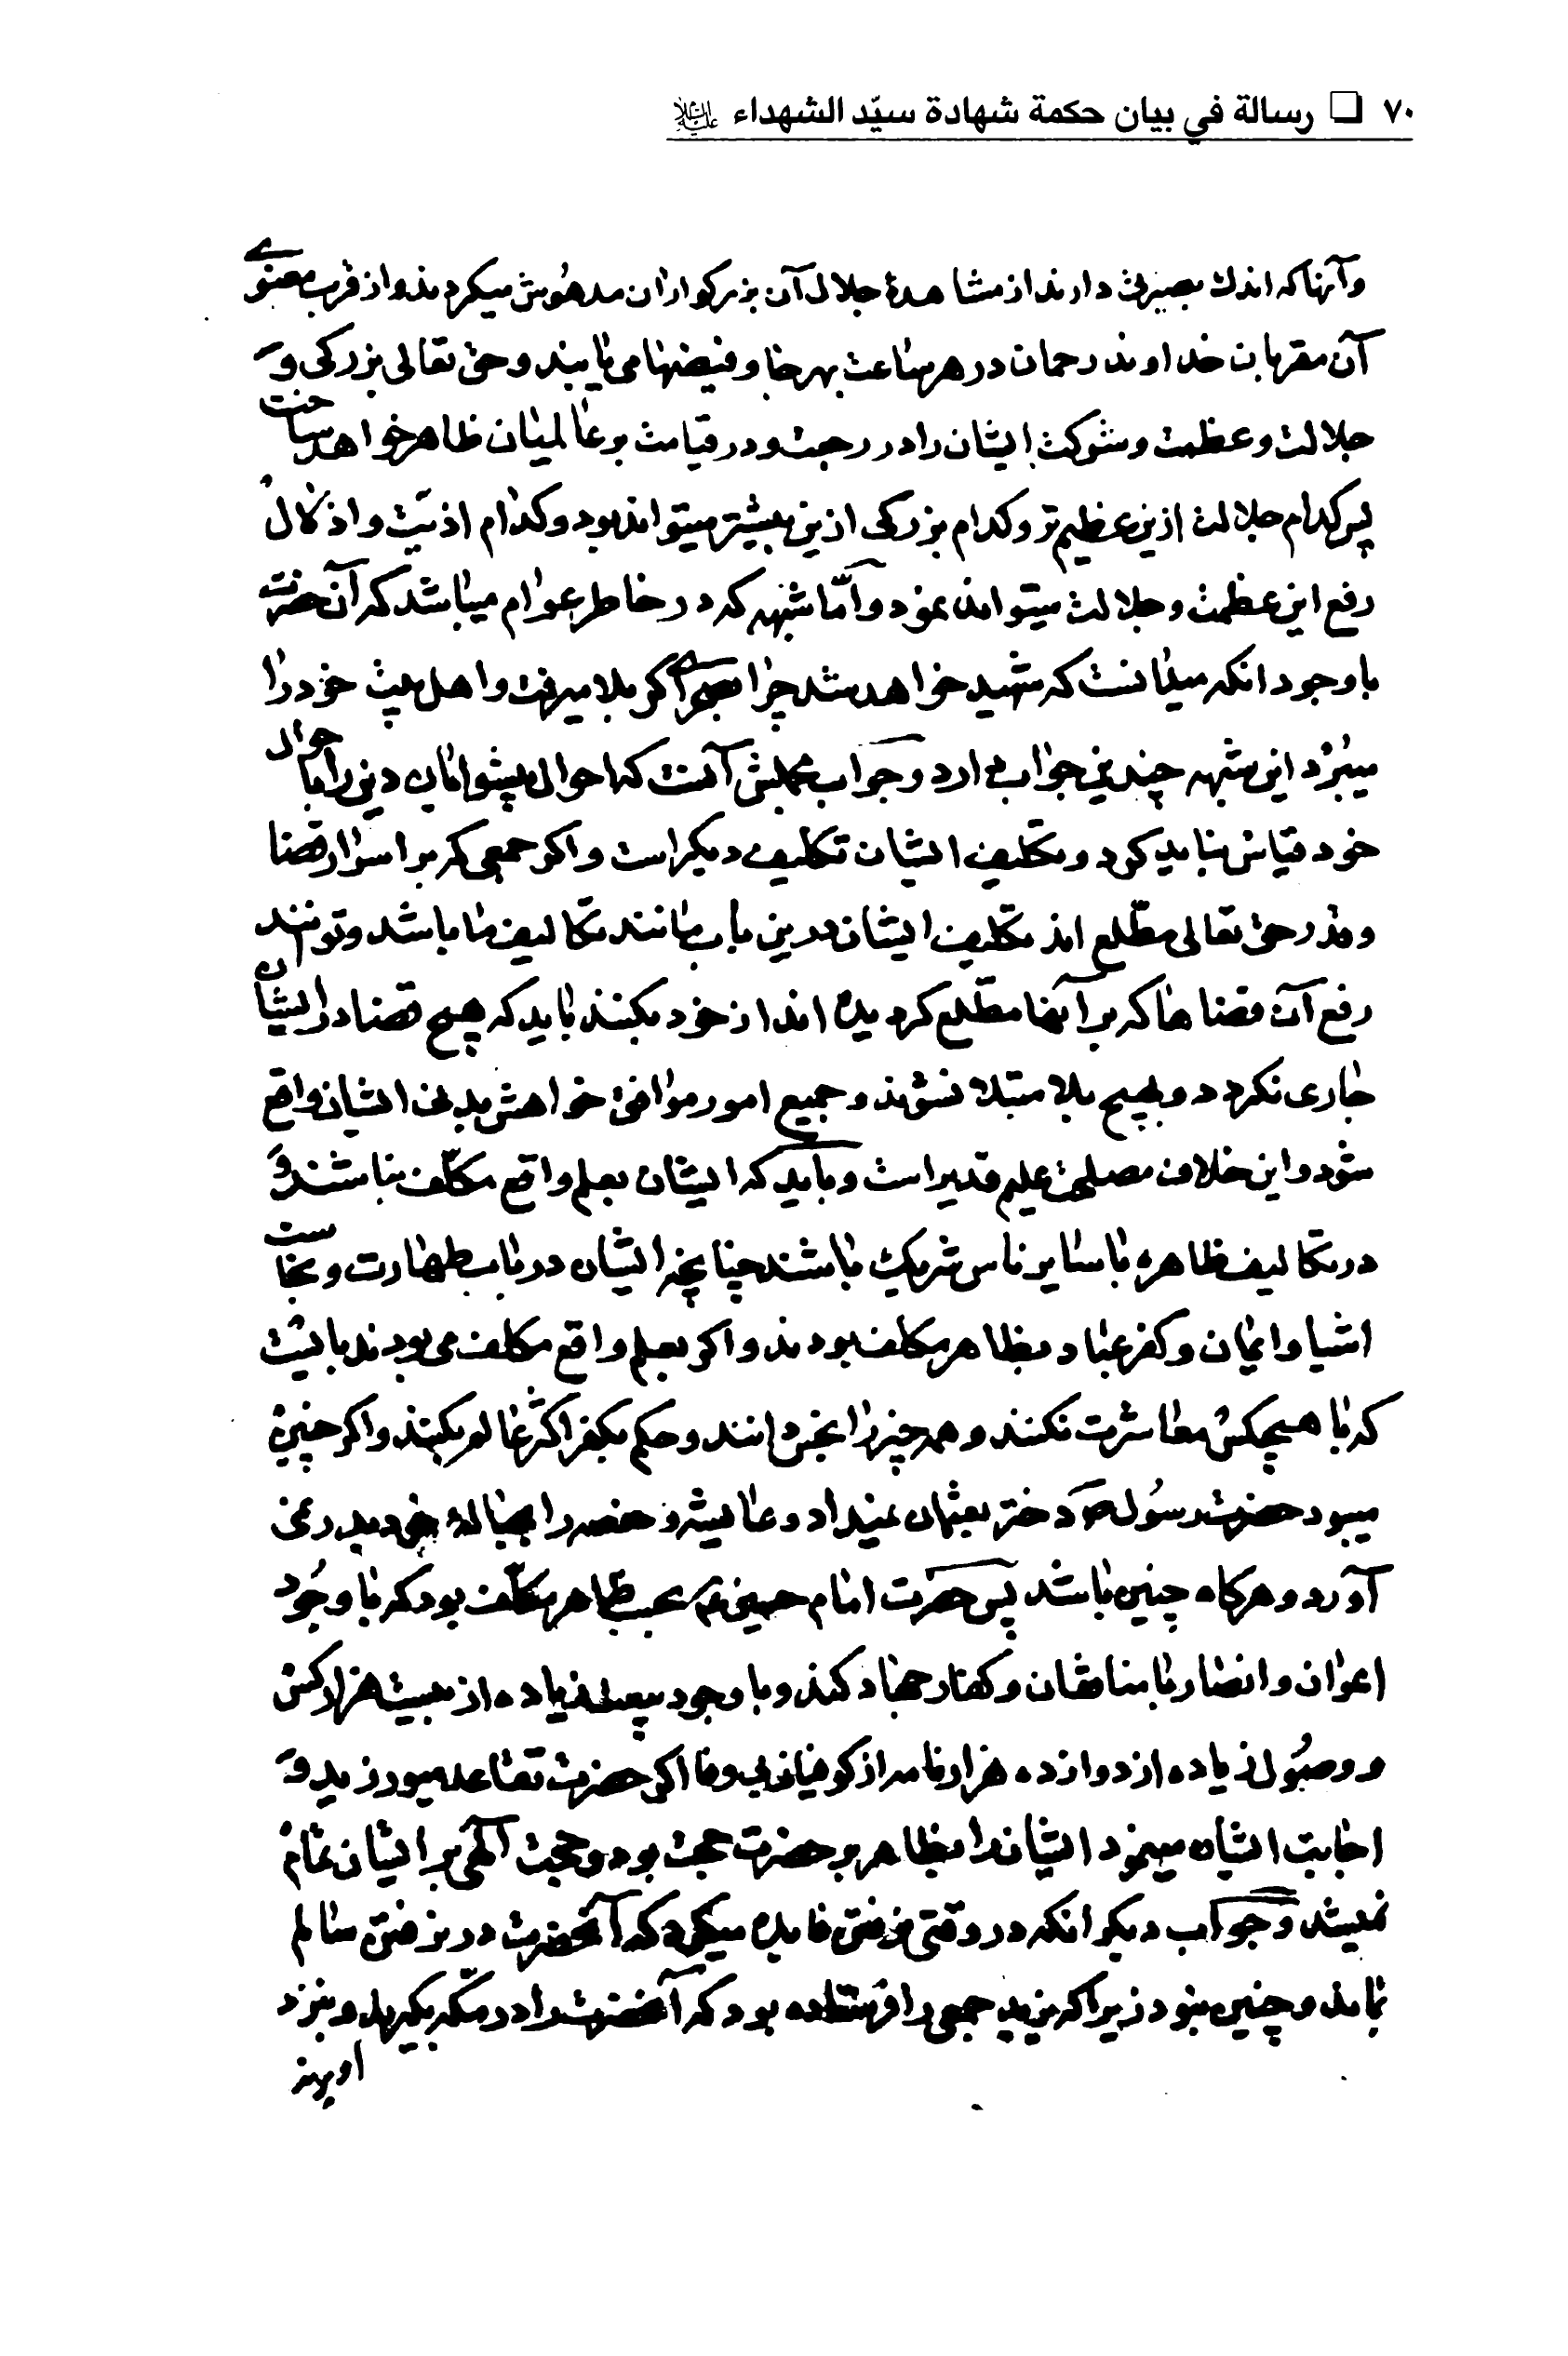 ٧٠ ❏ رسالة في بيان حكمة شهادة سيّد الشهداء عليه السلام
وآنها که اندک بصیرتی دارند از مشاهدهٔ جلال آن بزرکواران مدهوش میکردند و از قرب معنوی
آن مقربان خداوند رحمان در هر ساعت بهرها و فیضها می یابند و حق تعالی بزرکی و
جلالت و عظمت و شوکت ایشان را در رجعت و در قیامت بر عالمیان ظاهر خواهد ساخت
پس کدام جلالت ازین عظیم تر و کدام بزرکی ازین بیشتر میتواند بود و کدام اذیّت و اذلال
رفع این عظمت و جلالت میتواند نمود و امّا شبهه که در خاطر عوام میباشد که آن حضرت
با وجود انکه میدانست که شهید خواهد شد چرا بصحرای کربلا میرفت و اهل بیت خود را
میبرد این شبهه چندین جواب دارد و جواب مجملش آنست که احوال پیشوایان دین را با احوال
خود قیاس نباید کرد و تکلیف ایشان تکلیف دیکر است و اکر جمعی که بر اسرار قضا
و قدر حق تعالی مطّلع اند تکلیف ایشان درین باب مانند تکالیف ما باشد و توانند
رفع آن قضاها که بر آنها مطّلع کردیده اند از خود بکنند باید که هیچ قضا در ایشان
جاری نکردد و بهیچ بلا مبتلا نشوند و جمیع امور موافق خواهش بدنی ایشان واقع
شود و این خلاف مصلحت علیم قدیر است و باید که ایشان بعلم واقع مکلّف نباشند و
در تکالیف ظاهره با سایر ناس شریک باشند چنانچه ایشان در باب طهارت و نجاست
اشیا و ایمان و کفر عباد بظاهر مکلف بودند و اکر بعلم واقع مکلف می بودند بایست
که با هیچکس معاشرت نکنند و همه چیز را نجس دانند و حکم بکفر اکثر عالم بکنند و اکر چنین
میبود حضرت رسول ص دختر بعثمان نمیداد و عایشه و حفصه را بحبالهٔ خود در نمی
آورد و هرکاه چنین باشد پس حضرت امام حسین ع بحسب ظاهر مکلّف بود که با وجود
اعوان و انصار با منافقان و کفار جهاد کند و با وجود بیعت زیاده از بیست هزار کس
و وصول زیاده از دوازده هزار نامه از کوفیان بی وفا اکر حضرت تقاعد میورزید و
اجابت ایشان نمینمود ایشان را بظاهر بر حضرت حجت بود و حجت الهی بر ایشان تمام
نمیشد و جواب دیکر انکه در وقتی نرفتن فایده میکرد که آنحضرت در نرفتن سالم
بماند و چنین نبود زیرا که یزید جمعی را فرستاده بود که آنحضرت را در مکّه بکیرند و بنزد
او برند